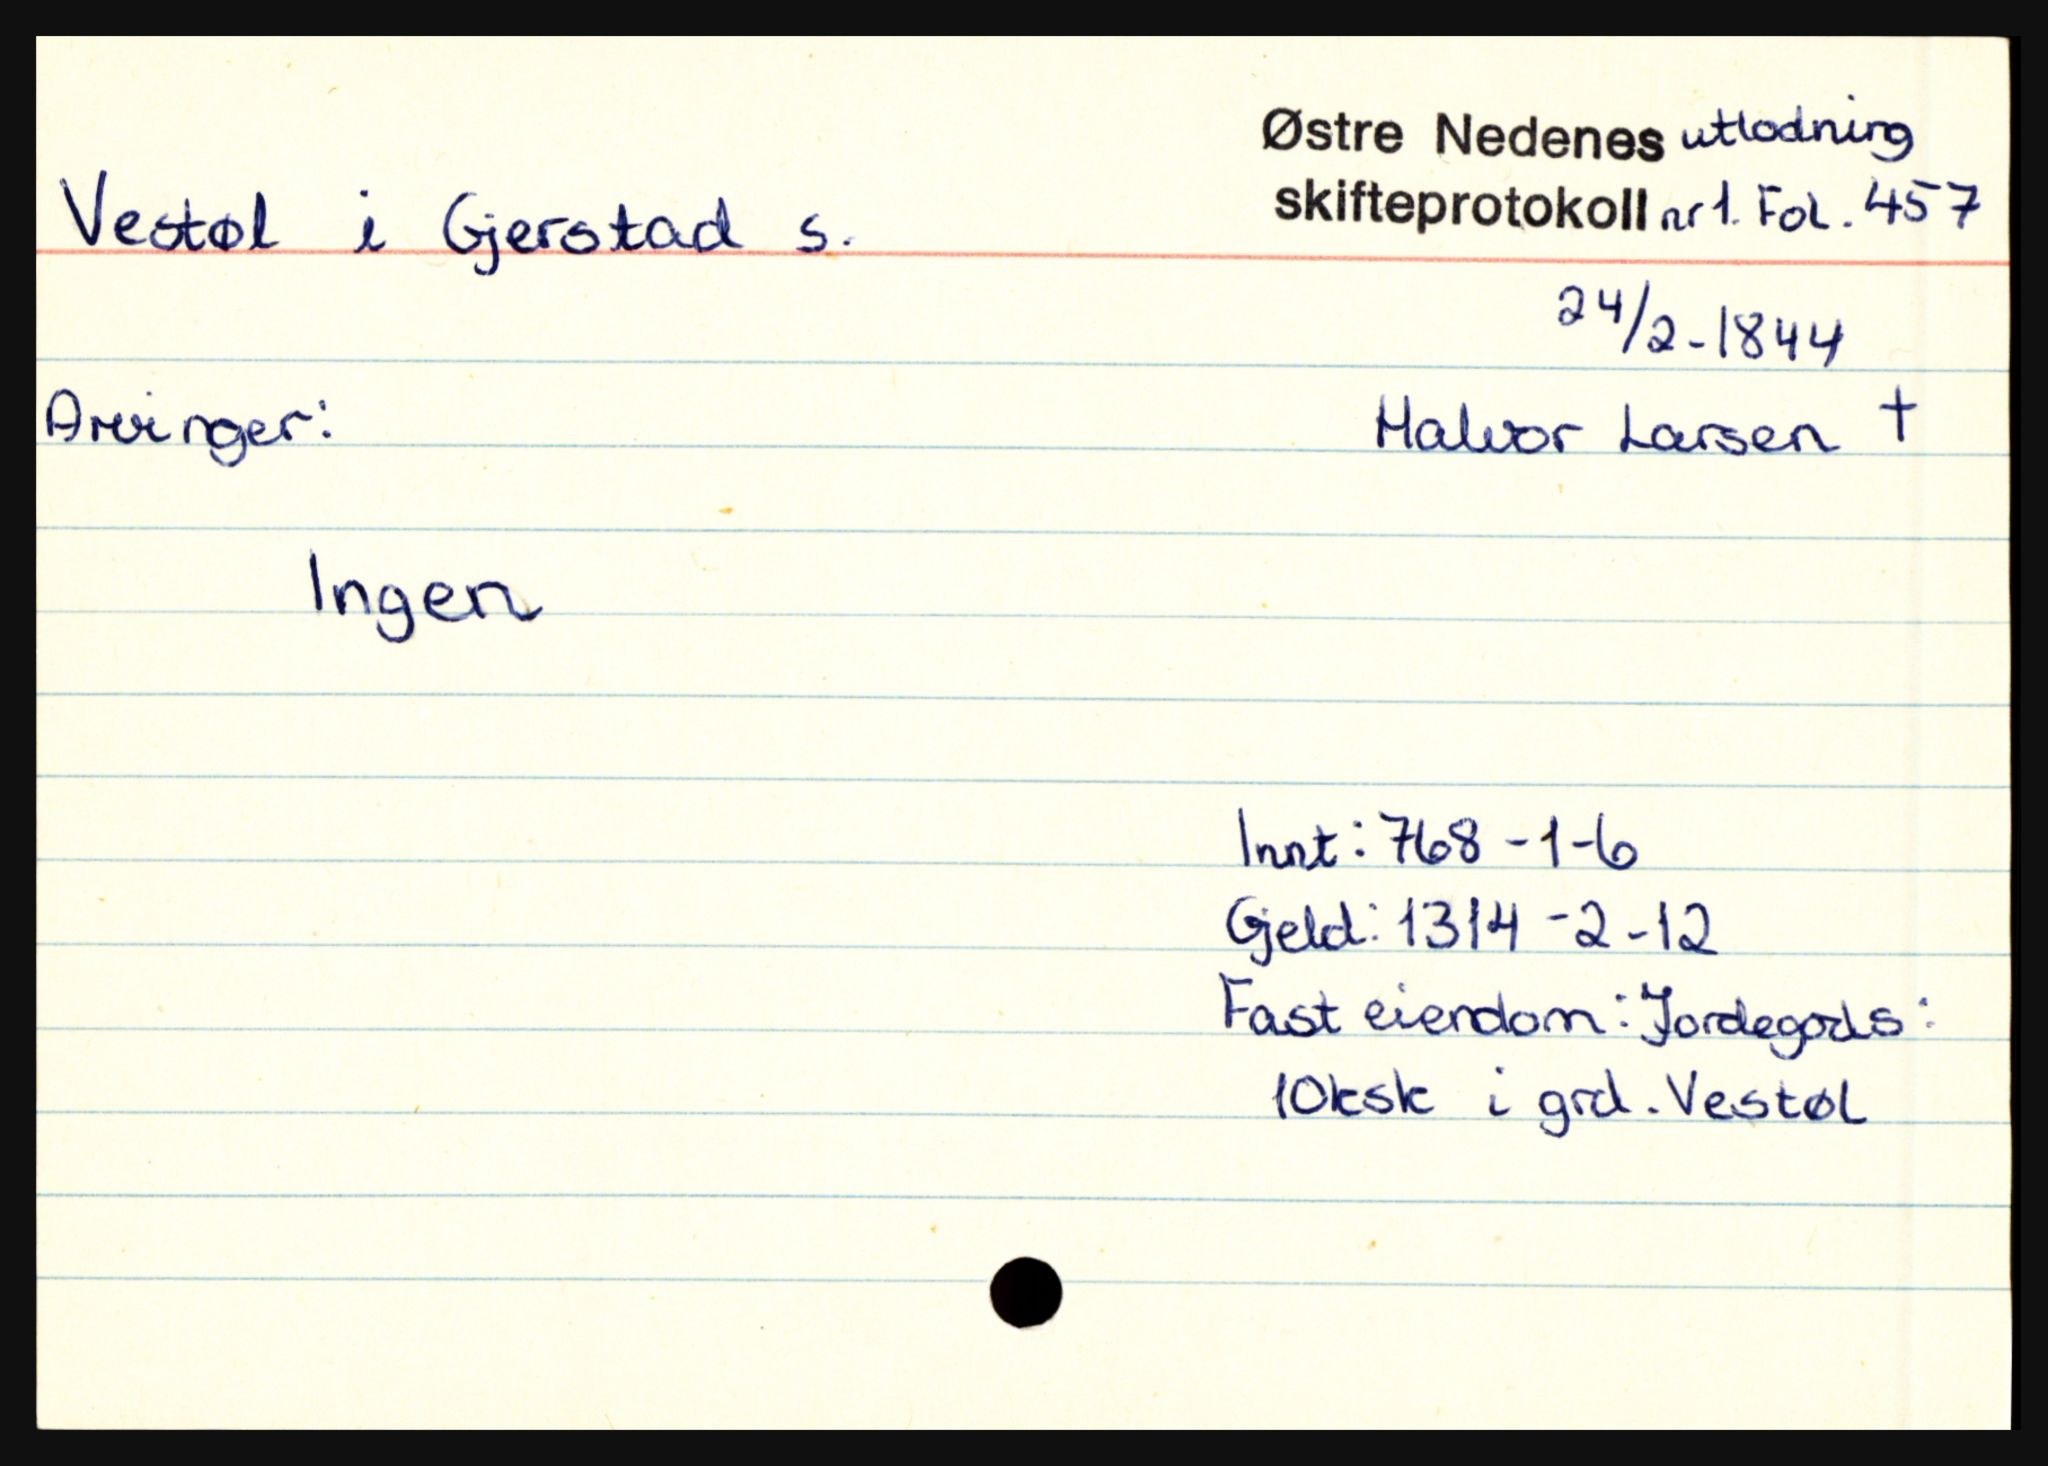 Østre Nedenes utlodning
Vestøl i Gjerstad s.
skifteprotokoll nr 1. Fol. 457
24/2-1844
Arvinger:
Halvor Larsen †
Ingen
Innt: 768-1-6
Gjeld: 1314-2-12
Fast eiendom: Jordegods:
10ksk i grd. Vestøl